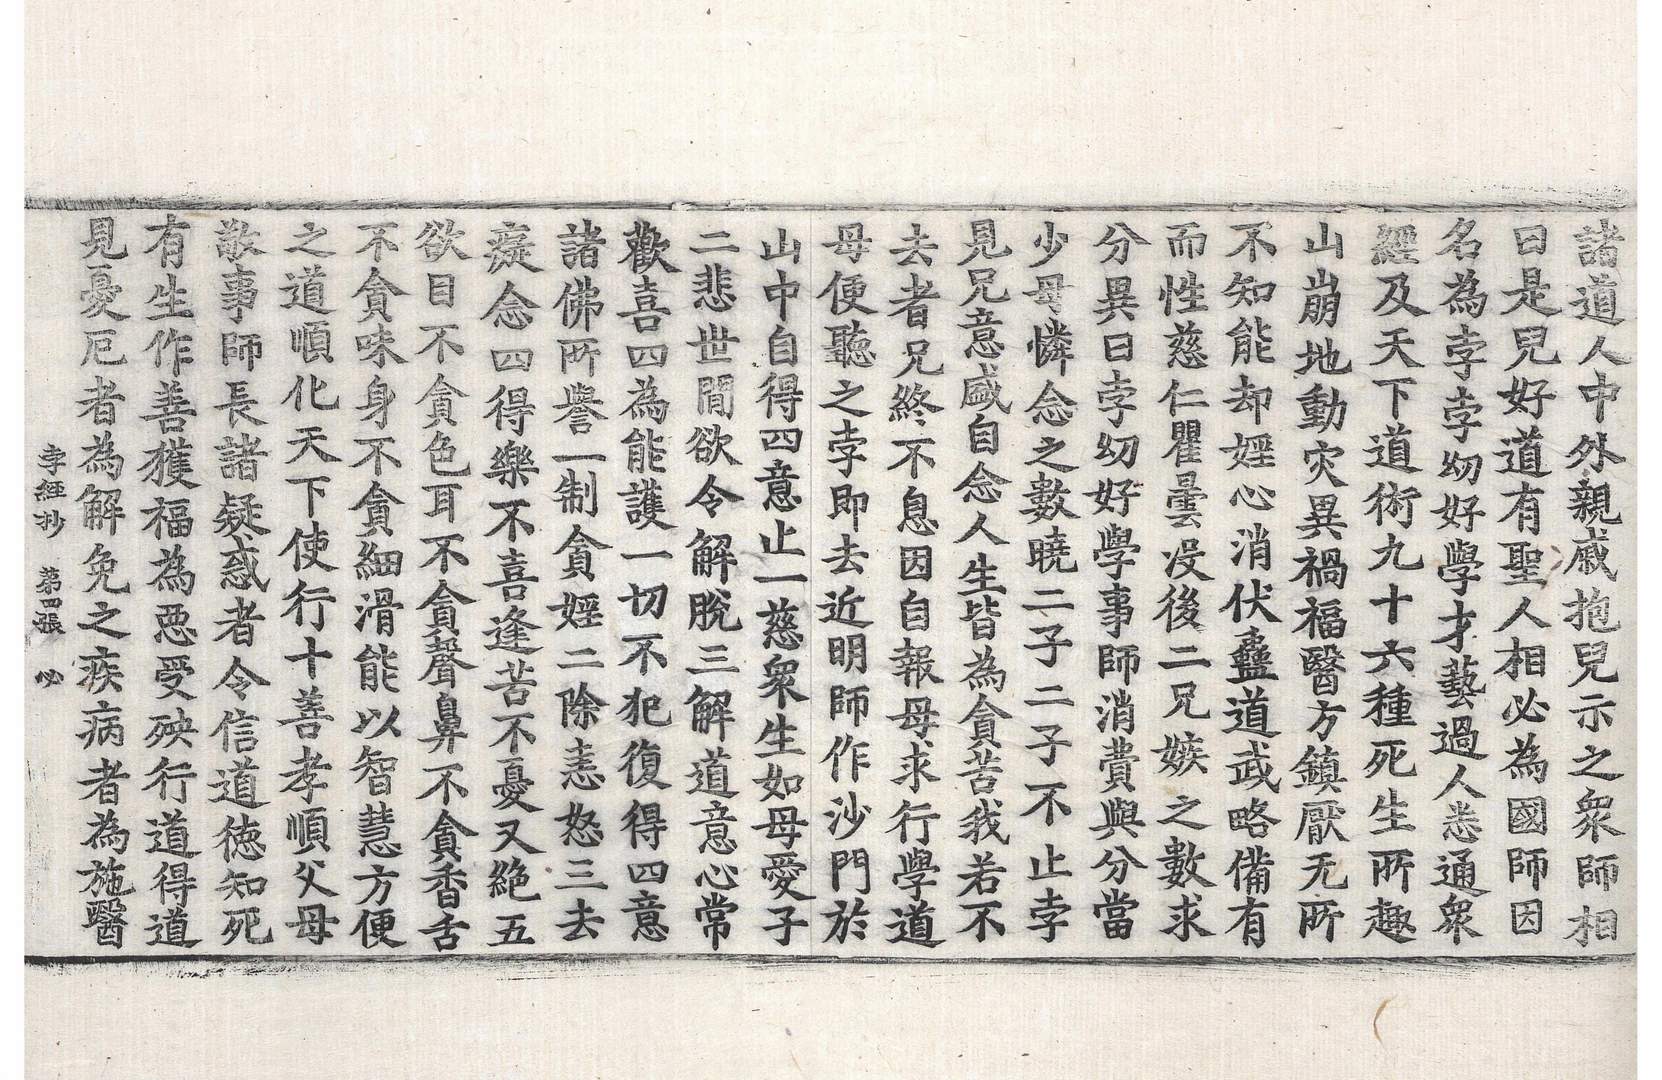 諸道人中外親戚抱兒示之衆師相
曰是兒好道有聖人相必為國師因
名為孛孛幼好學才藝過人悉通衆
經及天下道術九十六種死生所趣
山崩地動灾異禍福醫方鎮厭无所
不知能却婬心消伏蠱道武略備有
而性慈仁瞿曇没後二兄嫉之數求
分異曰孛幼好學事師消費與分當
少母憐念之數曉二子二子不止孛
見兄意盛自念人生皆為貪苦我若不
去者兄終不息因自報母求行學道
母便聽之孛即去近明師作沙門於
山中自得四意止一慈衆生如母愛子
二悲世間欲令解脫三解道意心常
歡喜四為能護一切不犯復得四意
諸佛所譽一制貪婬二除恚怒三去
癡念四得樂不喜逢苦不憂又絕五
欲目不貪色耳不貪聲鼻不貪香舌
不貪味身不貪細滑能以智慧方便
之道順化天下使行十善孝順父母
敬事師長諸疑惑者令信道德知死
有生作善獲福為惡受殃行道得道
見憂厄者為解免之疾病者為施醫
孛經抄 第四張 必